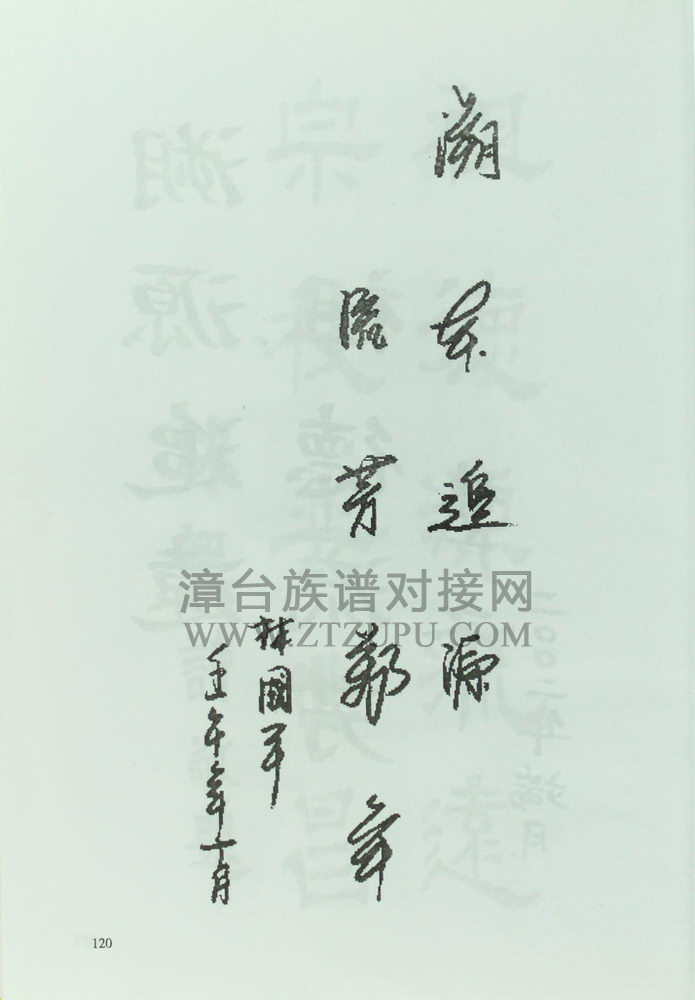 溯本追源
流芳萬年
林國平
壬午年十月
漳台族谱对接网
WWW.ZTZUPU.COM
120